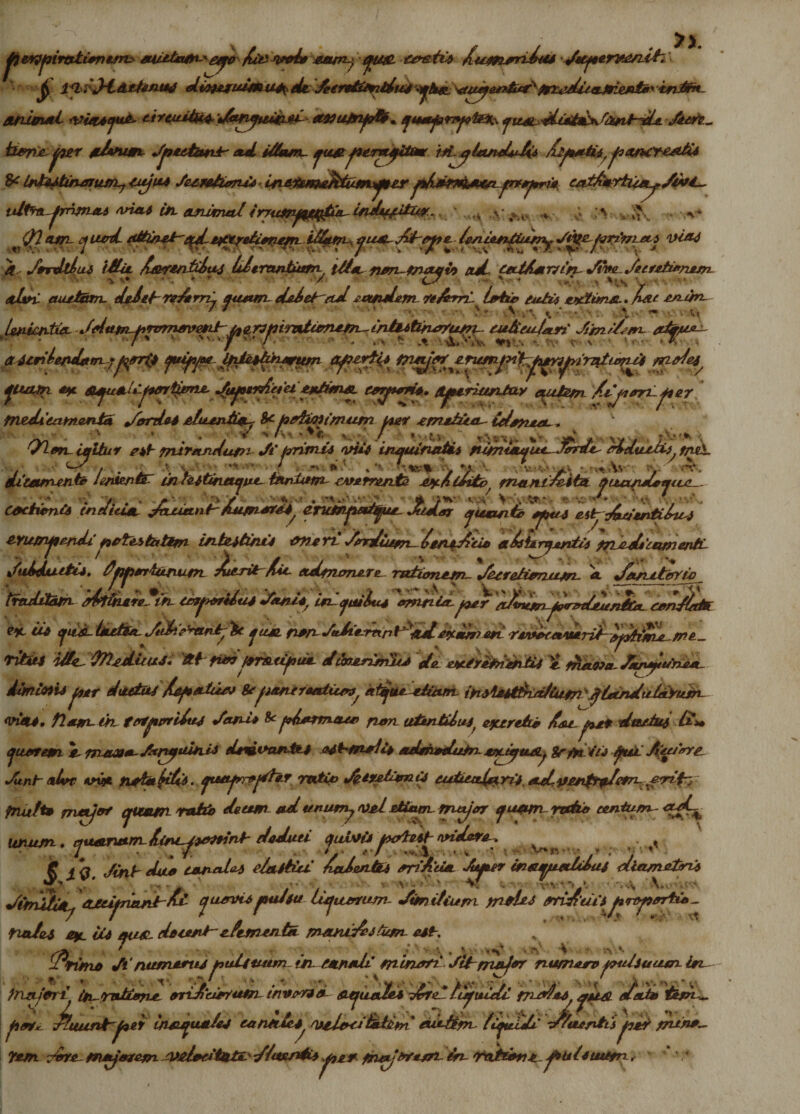 71.
perspirationem auctam ego hic volo eam, quæ coctis humoribus supervenit.
§ 12. Hactenus disseruimus de Secretionibus quæ augentur medicamento intra
animal viasque circuitus sanguinei assumpto. quapropter quæ dicta sunt de Secre_
tione per alvum spectant ad illam quæ peragitur in glandulis hepatis, pancreatis
& intestinorum, cujus Secretionis incrementum per pharmaca propria cathartica, sive
ultra primas vias in animal irrumpentia inducitur.
Nam quod attinet ad excretionem illam, quæ fit ope lenientium, sive primas vias
a sordibus illic hærentibus liberantium, illa non magis ad Catharsin, sive Secretionem
alvi auctam debet referri, quam debet ad eandem referri lotio cutis extima. hac enim
lenientia solum promovent perspirationem intestinorum cuticulari similem atque
adscribendam, portis quippe intestinorum apertis major erumpit perspirationis moles
quam ex æquali portione superficiei extimæ corporis. Aperiuntur autem hi pori per
medicamenta sordes eluentia, & potissimum per emetica idonea.
Non igitur est mirandum si primis viis inquinatis nimiaque sorde obductis, me_
dicamento leniente in intestinaque tantum operante exhibito, manifesta quandoque
coctionis indicia fiant humores, erumpatque sudor quanto opus est, facientibus
erumpendi potestatem intestinis omeri sordium beneficio abstergentis medicamenti
subductis. Opportunum fuerit hic admonere rationem Secretionum a Sanctorio
traditam obtinere in corporibus sanis, in quibus omnia per alvum prodeuntia conflata
ex iis quæ tecta subierant, & quæ non subierant ad examen revocaverit optime me_
ritus ille Medicus. At nos præcipue disserimus de excrementis e massa sanguinea
dimissis per ductus hepaticos & pancreaticos, atque etiam intestinalium glandularum
vias. Nam in corporibus sanis & pharmaco non utentibus, excretio hac per ductus li_
quorem e massa sanguinis derivantes est molis admodum exigua, & in iis qui sicciore
sunt alvo vix notabilis. quapropter ratio secretionis cuticularis ad ventralem erit
multo major quam ratio decem ad unum, vel etiam major quam ratio centum ad
unum. quænam hinc possint deduci quivis potest videre.
§ 13. Sint duo canales elastici habentes orificia super inæqualibus diametris
similia, accipiant hi quovis pulsu liquorum similium moles orificiis proportio_
nales ex iis quæ docent elementa manifestum est.
Primo si numerus pulsuum in canali minori sit major numero pulsuum in
majori, in ratione orificiorum inversa æquales fore liquidi moles, quæ dato tem_
pore fluunt per inæquales canales, velocitatem autem liquidi fluentis per mino_
rem fore majorem velocitate fluentis per majorem in ratione pulsuum.